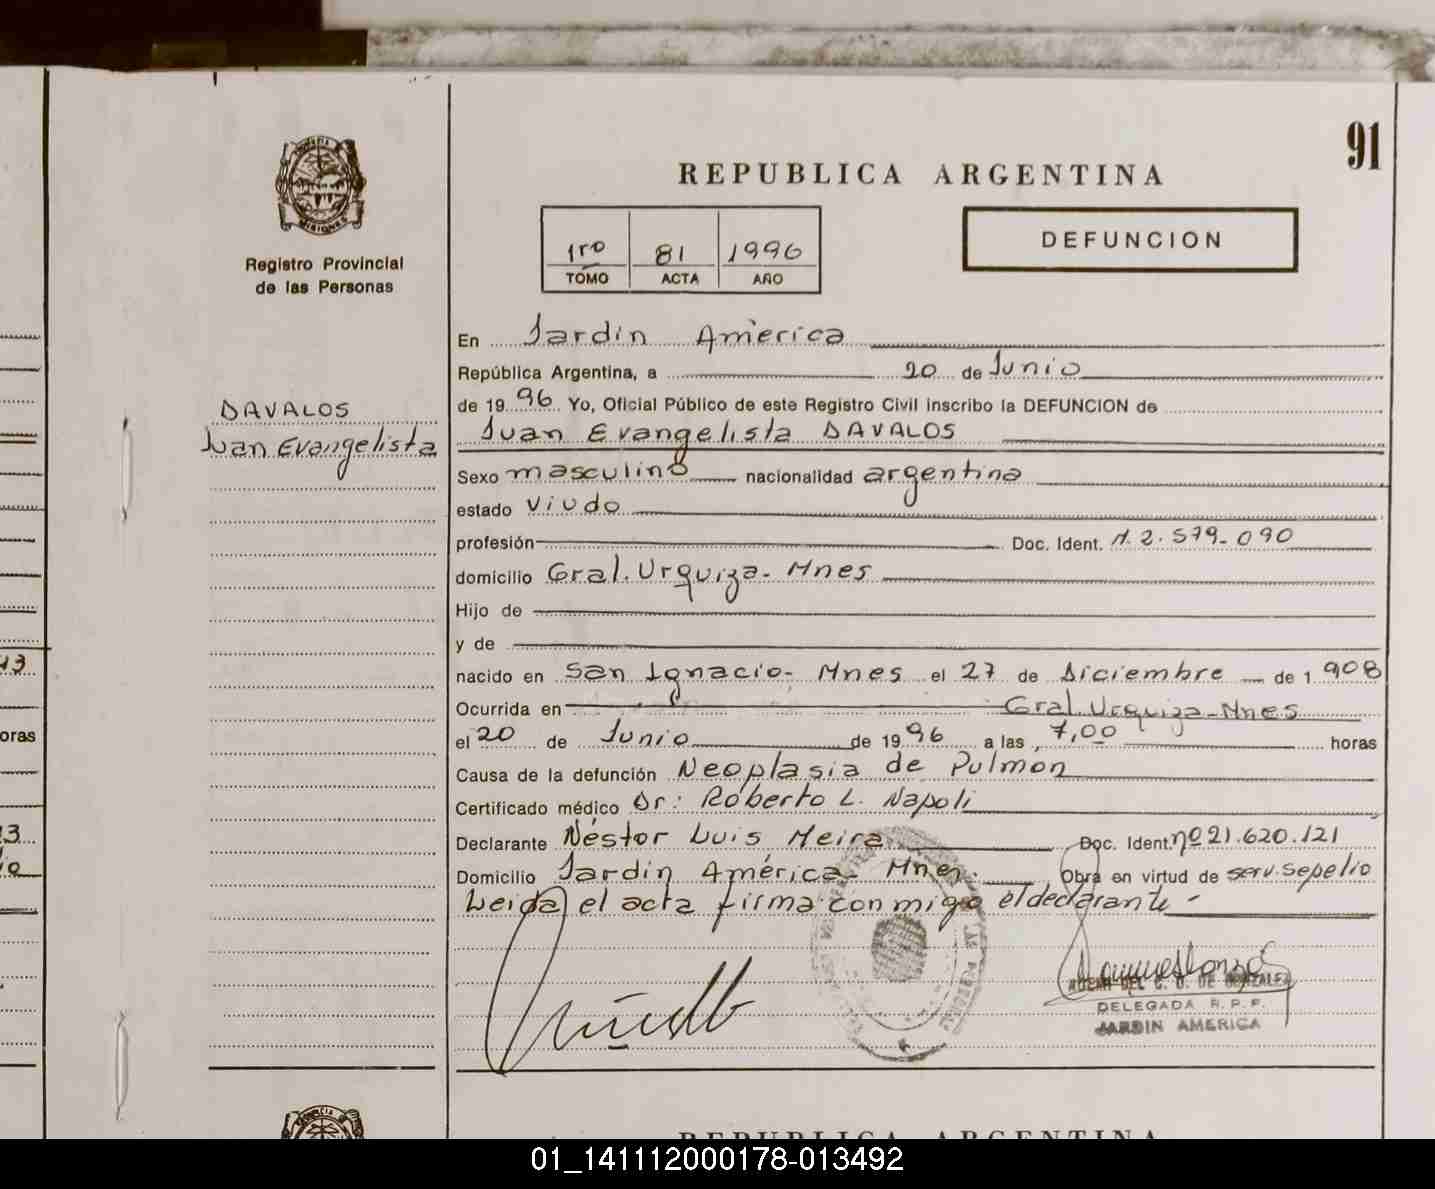 91
REPUBLICA ARGENTINA
PROVINCIA DE
MISIONES
Registro Provincial
de las Personas
1ro 81 1996
TOMO ACTA AÑO
DEFUNCION
DAVALOS
Juan Evangelista
En Jardin America
República Argentina, a 20 de Junio
de 1996 Yo, Oficial Público de este Registro Civil inscribo la DEFUNCION de
Juan Evangelista DAVALOS
Sexo masculino nacionalidad argentina
estado Viudo
profesión Doc. Ident. M. 2.579-090
domicilio Gral. Urquiza- Mnes
Hijo de
y de
nacido en San Ignacio- Mnes el 27 de Diciembre de 1908
Ocurrida en Gral. Urquiza-Mnes
el 20 de Junio de 1996 a las 7,00 horas
Causa de la defunción Neoplasia de Pulmon
Certificado médico Dr: Roberto L. Napoli
Declarante Néstor Luis Meira Doc. Ident. nº 21.620.121
Domicilio Jardin América- Mnes. Obra en virtud de serv. sepelio
Leida el acta firma conmigo el declarante-
DEL C. D. DE GONZALEZ
DELEGADA R. P. P.
JARDIN AMERICA
43
oras
REPUBLICA ARGENTINA
01_141112000178-013492